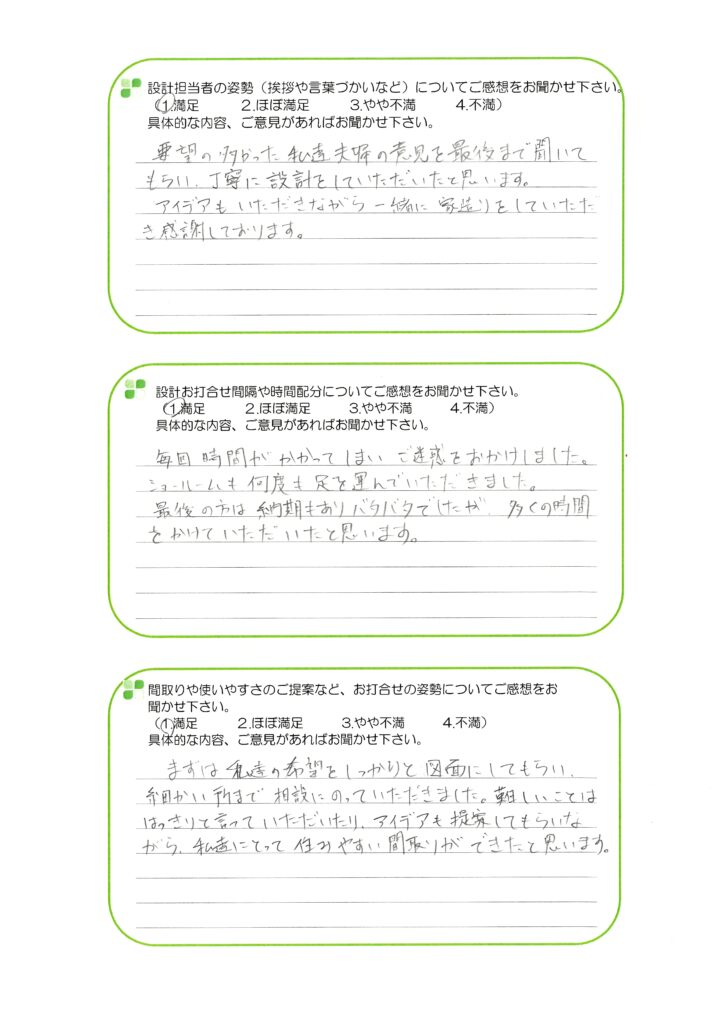 設計担当者の姿勢（挨拶や言葉づかいなど）についてご感想をお聞かせ下さい。
（1.満足　2.ほぼ満足　3.やや不満　4.不満）
具体的な内容、ご意見があればお聞かせ下さい。
要望の多かった私達夫婦の意見を最後まで聞いて
もらい、丁寧に設計をしていただいたと思います。
アイデアもいただきながら一緒に家造りをしていただ
き感謝しております。
設計お打合せ間隔や時間配分についてご感想をお聞かせ下さい。
（1.満足　2.ほぼ満足　3.やや不満　4.不満）
具体的な内容、ご意見があればお聞かせ下さい。
毎回時間がかかってしまいご迷惑をおかけしました。
ショールームも何度も足を運んでいただきました。
最後の方は納期もありバタバタでしたが、多くの時間
をかけていただいたと思います。
間取りや使いやすさのご提案など、お打合せの姿勢についてご感想をお
聞かせ下さい。
（1.満足　2.ほぼ満足　3.やや不満　4.不満）
具体的な内容、ご意見があればお聞かせ下さい。
まずは私達の希望をしっかりと図面にしてもらい、
細かい所まで相談にのっていただきました。難しいことは
はっきりと言っていただいたり、アイデアも提案してもらいな
がら、私達にとって住みやすい間取りができたと思います。